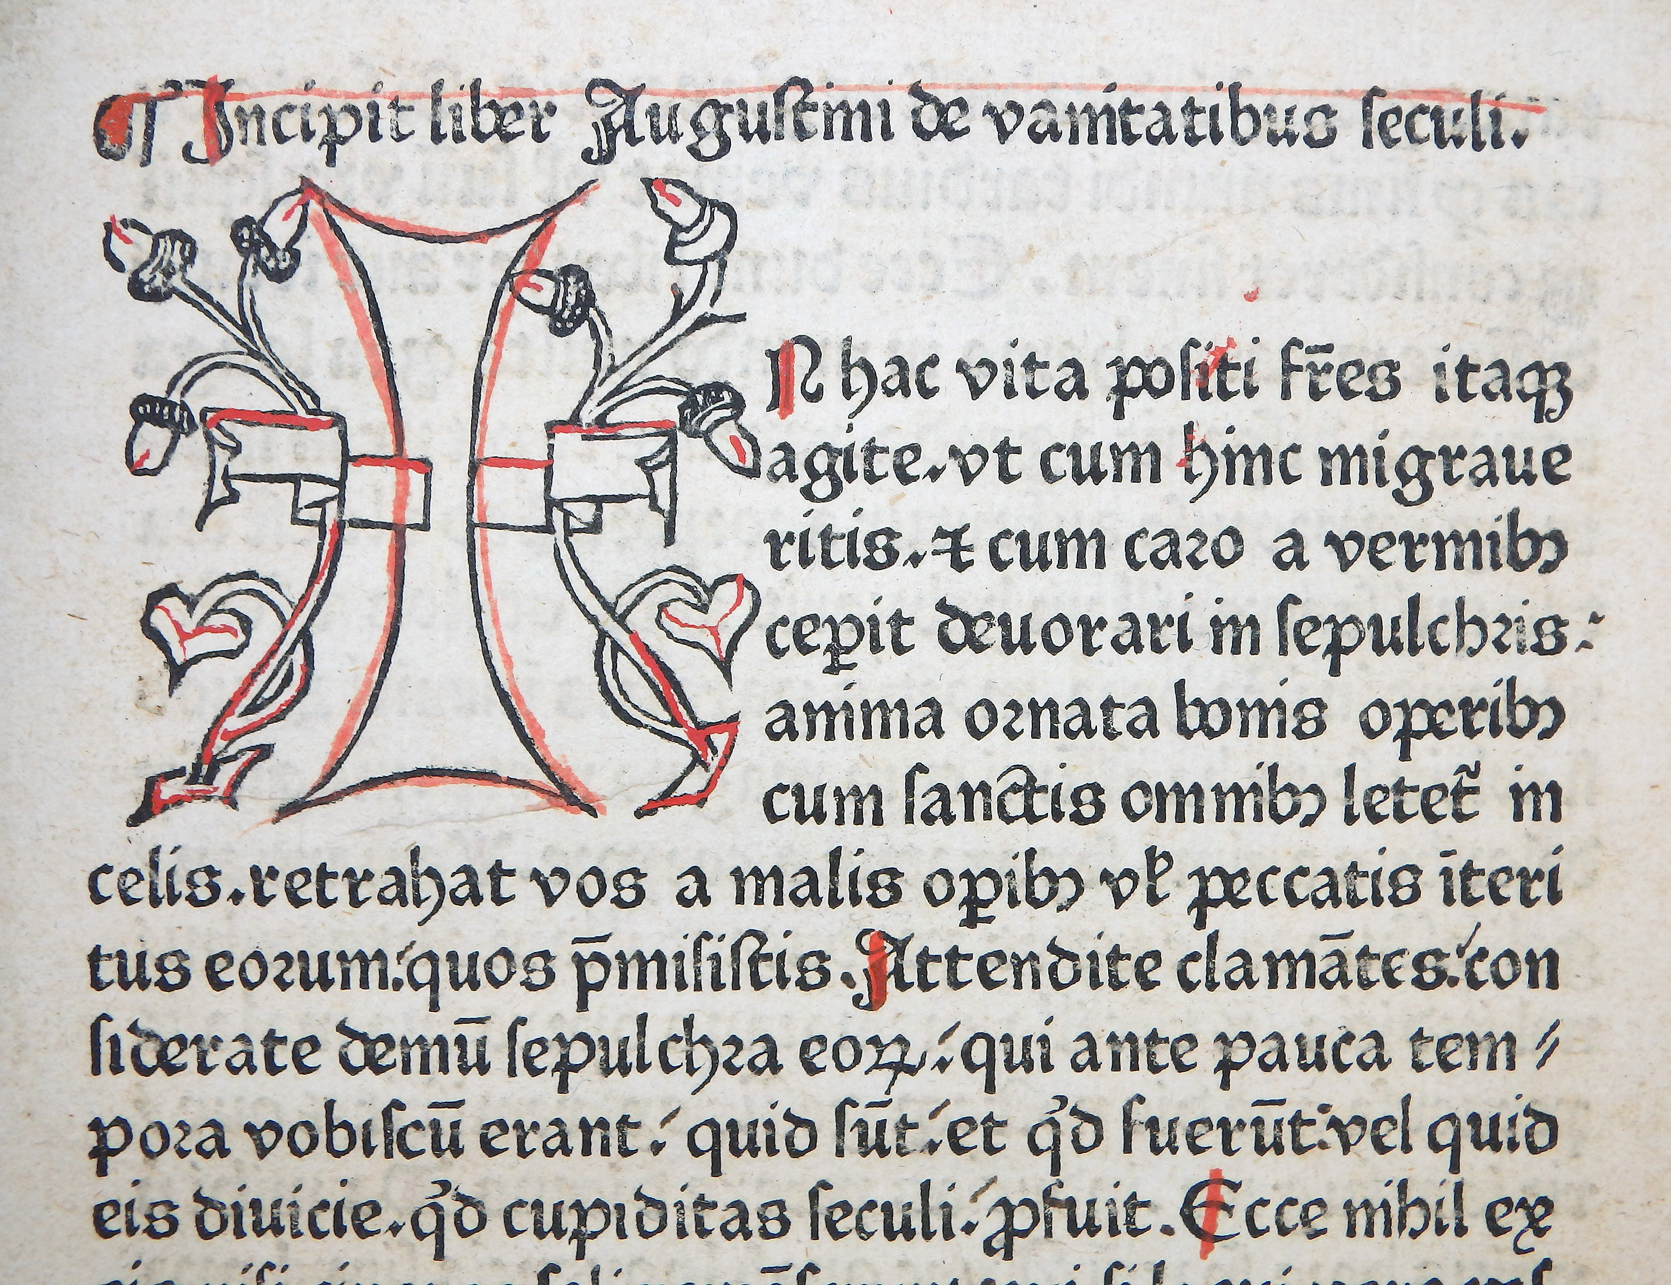 ¶ Incipit liber Auguſtini de vanitatibus ſeculi.
IN hac vita poſiti fr̄es itaqꝫ
agite.vt cum hinc migraue
ritis.⁊ cum caꝛo a vermibꝰ
cepit deuorari in ſepulchꝛis:
anima oꝛnata bonis operibꝰ
cum ſanctis omnibꝰ letet̃ in
celis.retrahat vos a malis oꝑibꝰ vƚ peccatis īteri
tus eoꝛum:quos p̄miſiſtis.Attendite clamātes:con
ſiderate demū ſepulchꝛa eoꝝ: qui ante pauca tem⸗
poꝛa vobiſcū erant: quid ſūt:et qͦd fuerūt:vel quid
eis diuicie.qͦd cupiditas ſeculi: ꝓfuit.Ecce nihil ex